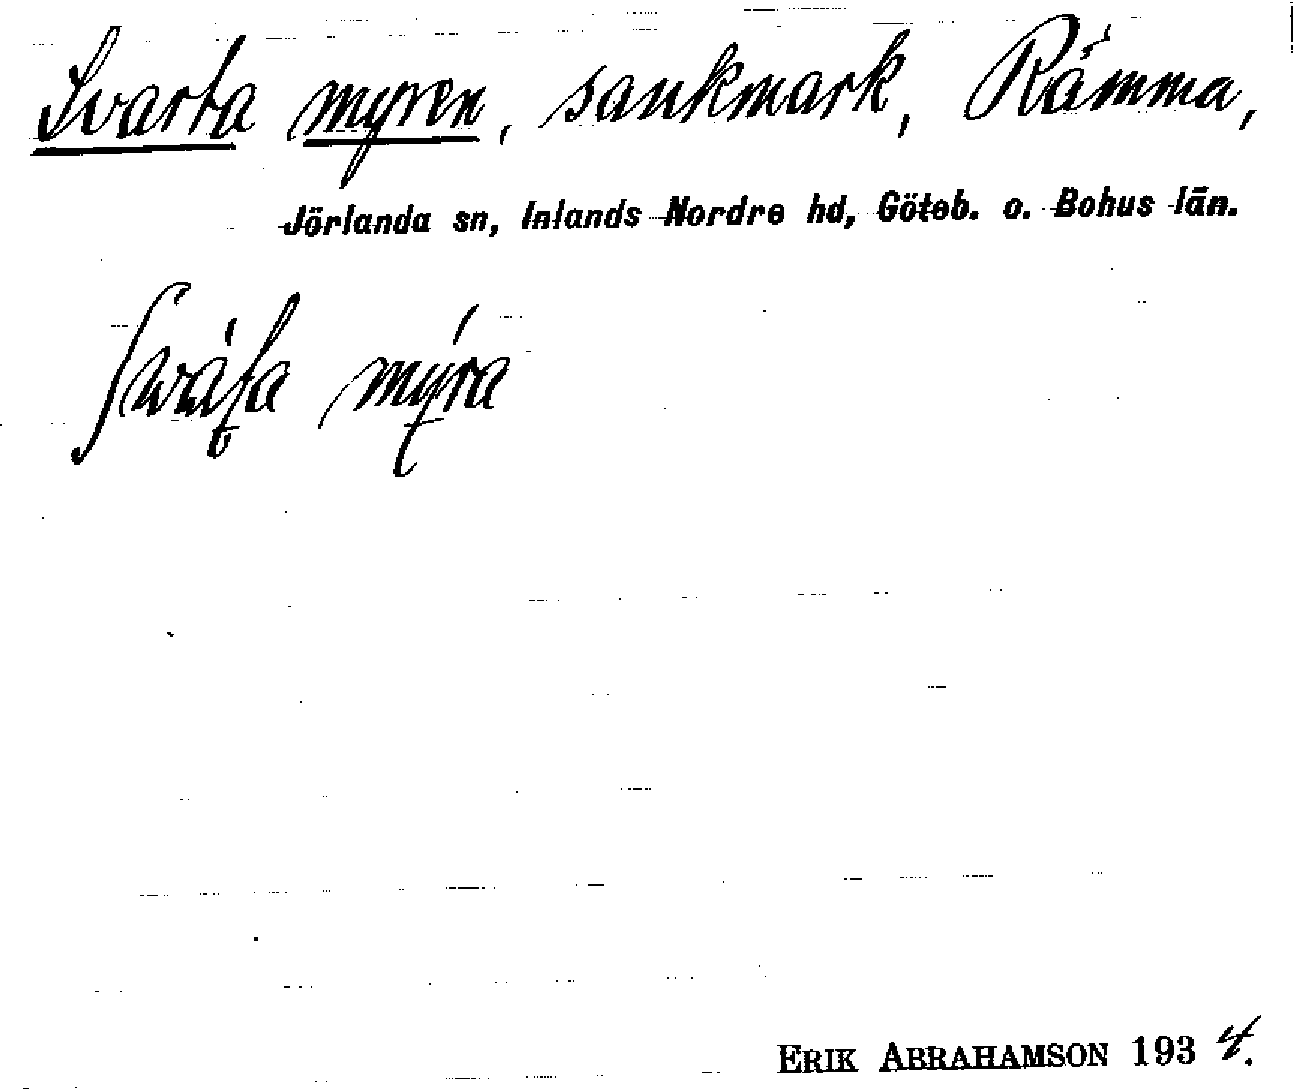 Svarta myren, sankmark, Rämma,
Jörlanda sn, Inlands Nordre hd, Göteb. o. Bohus län.
myra
ERIK ABRAHAMSON 1934.